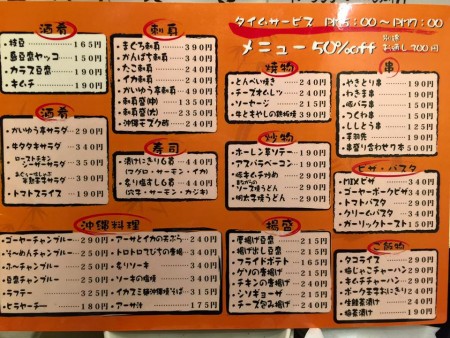 タイムサービス PM5:00〜PM7:00
メニュー 50%off
別途
お通し 200円
酒肴
・枝豆 165円
・島豆腐ヤッコ 150円
・カラス豆腐 190円
・キムチ 190円
刺身
・まぐろ刺身 390円
・かんぱち刺身 340円
・たこ刺身 240円
・イカ刺身 240円
・かいゆう串刺身 440円
・刺身盛(中) 350円
・刺身盛(大)
・沖縄モズク酢 240円
焼物
・とんぺい焼き 240円
・チーズオムレツ 240円
・ソーセージ 215円
・牛ともやしの鉄板焼 390円
串
・やきとり串
・ねぎま串
・豚バラ串
・つくね串
・ししとう串
・串盛り合わせ 500円
酒肴
・かいゆう串サラダ 290円
・キタクタキサラダ 340円
・ローストチキン
シーザーサラダ 350円
・トマトスライス 190円
寿司
・漬けにぎり6貫 440円
(マグロ・サーモン・イカ)
・炙り塩すし6貫 440円
(穴子・サーモン・カジキ)
炒物
・ホーレン草ソテー 290円
・アスパラベーコン 290円
・豚キムチ炒め 340円
ソース焼うどん 290円
・明太子焼うどん 340円
ピザ・パスタ
・MIXピザ 340円
・ゴーヤーポークピザ 340円
・トマトパスタ 290円
・クリームパスタ 340円
・ガーリックトースト 150円
沖縄料理
・ゴーヤーチャンプルー 290円
・そーめんチャンプルー 250円
・ふーチャンプルー 250円
・豆腐チャンプルー 250円
・ラフテー 325円
・ヒラヤーチー 180円
・アーサとイカの天ぷら 240円
・トロトロてびちの唐揚 340円
・炙りソーキ 340円
・ソーキの塩焼 340円
・イカスミ三昧沖縄焼そば 340円
・アーサ汁 175円
揚盛
・厚揚げ豆腐 215円
・揚げ出し豆腐 215円
・フライドポテト 165円
・グソの唐揚げ 215円
・チキンの唐揚げ 240円
・シソギョーザ 240円
・チーズ包み揚げ 240円
ご飯物
・タコライス 290円
・梅じゃこチャーハン 290円
・キムチチャーハン 290円
・ポーク玉子おにぎり 240円
・生鮭茶漬け 240円
・梅茶漬け 190円